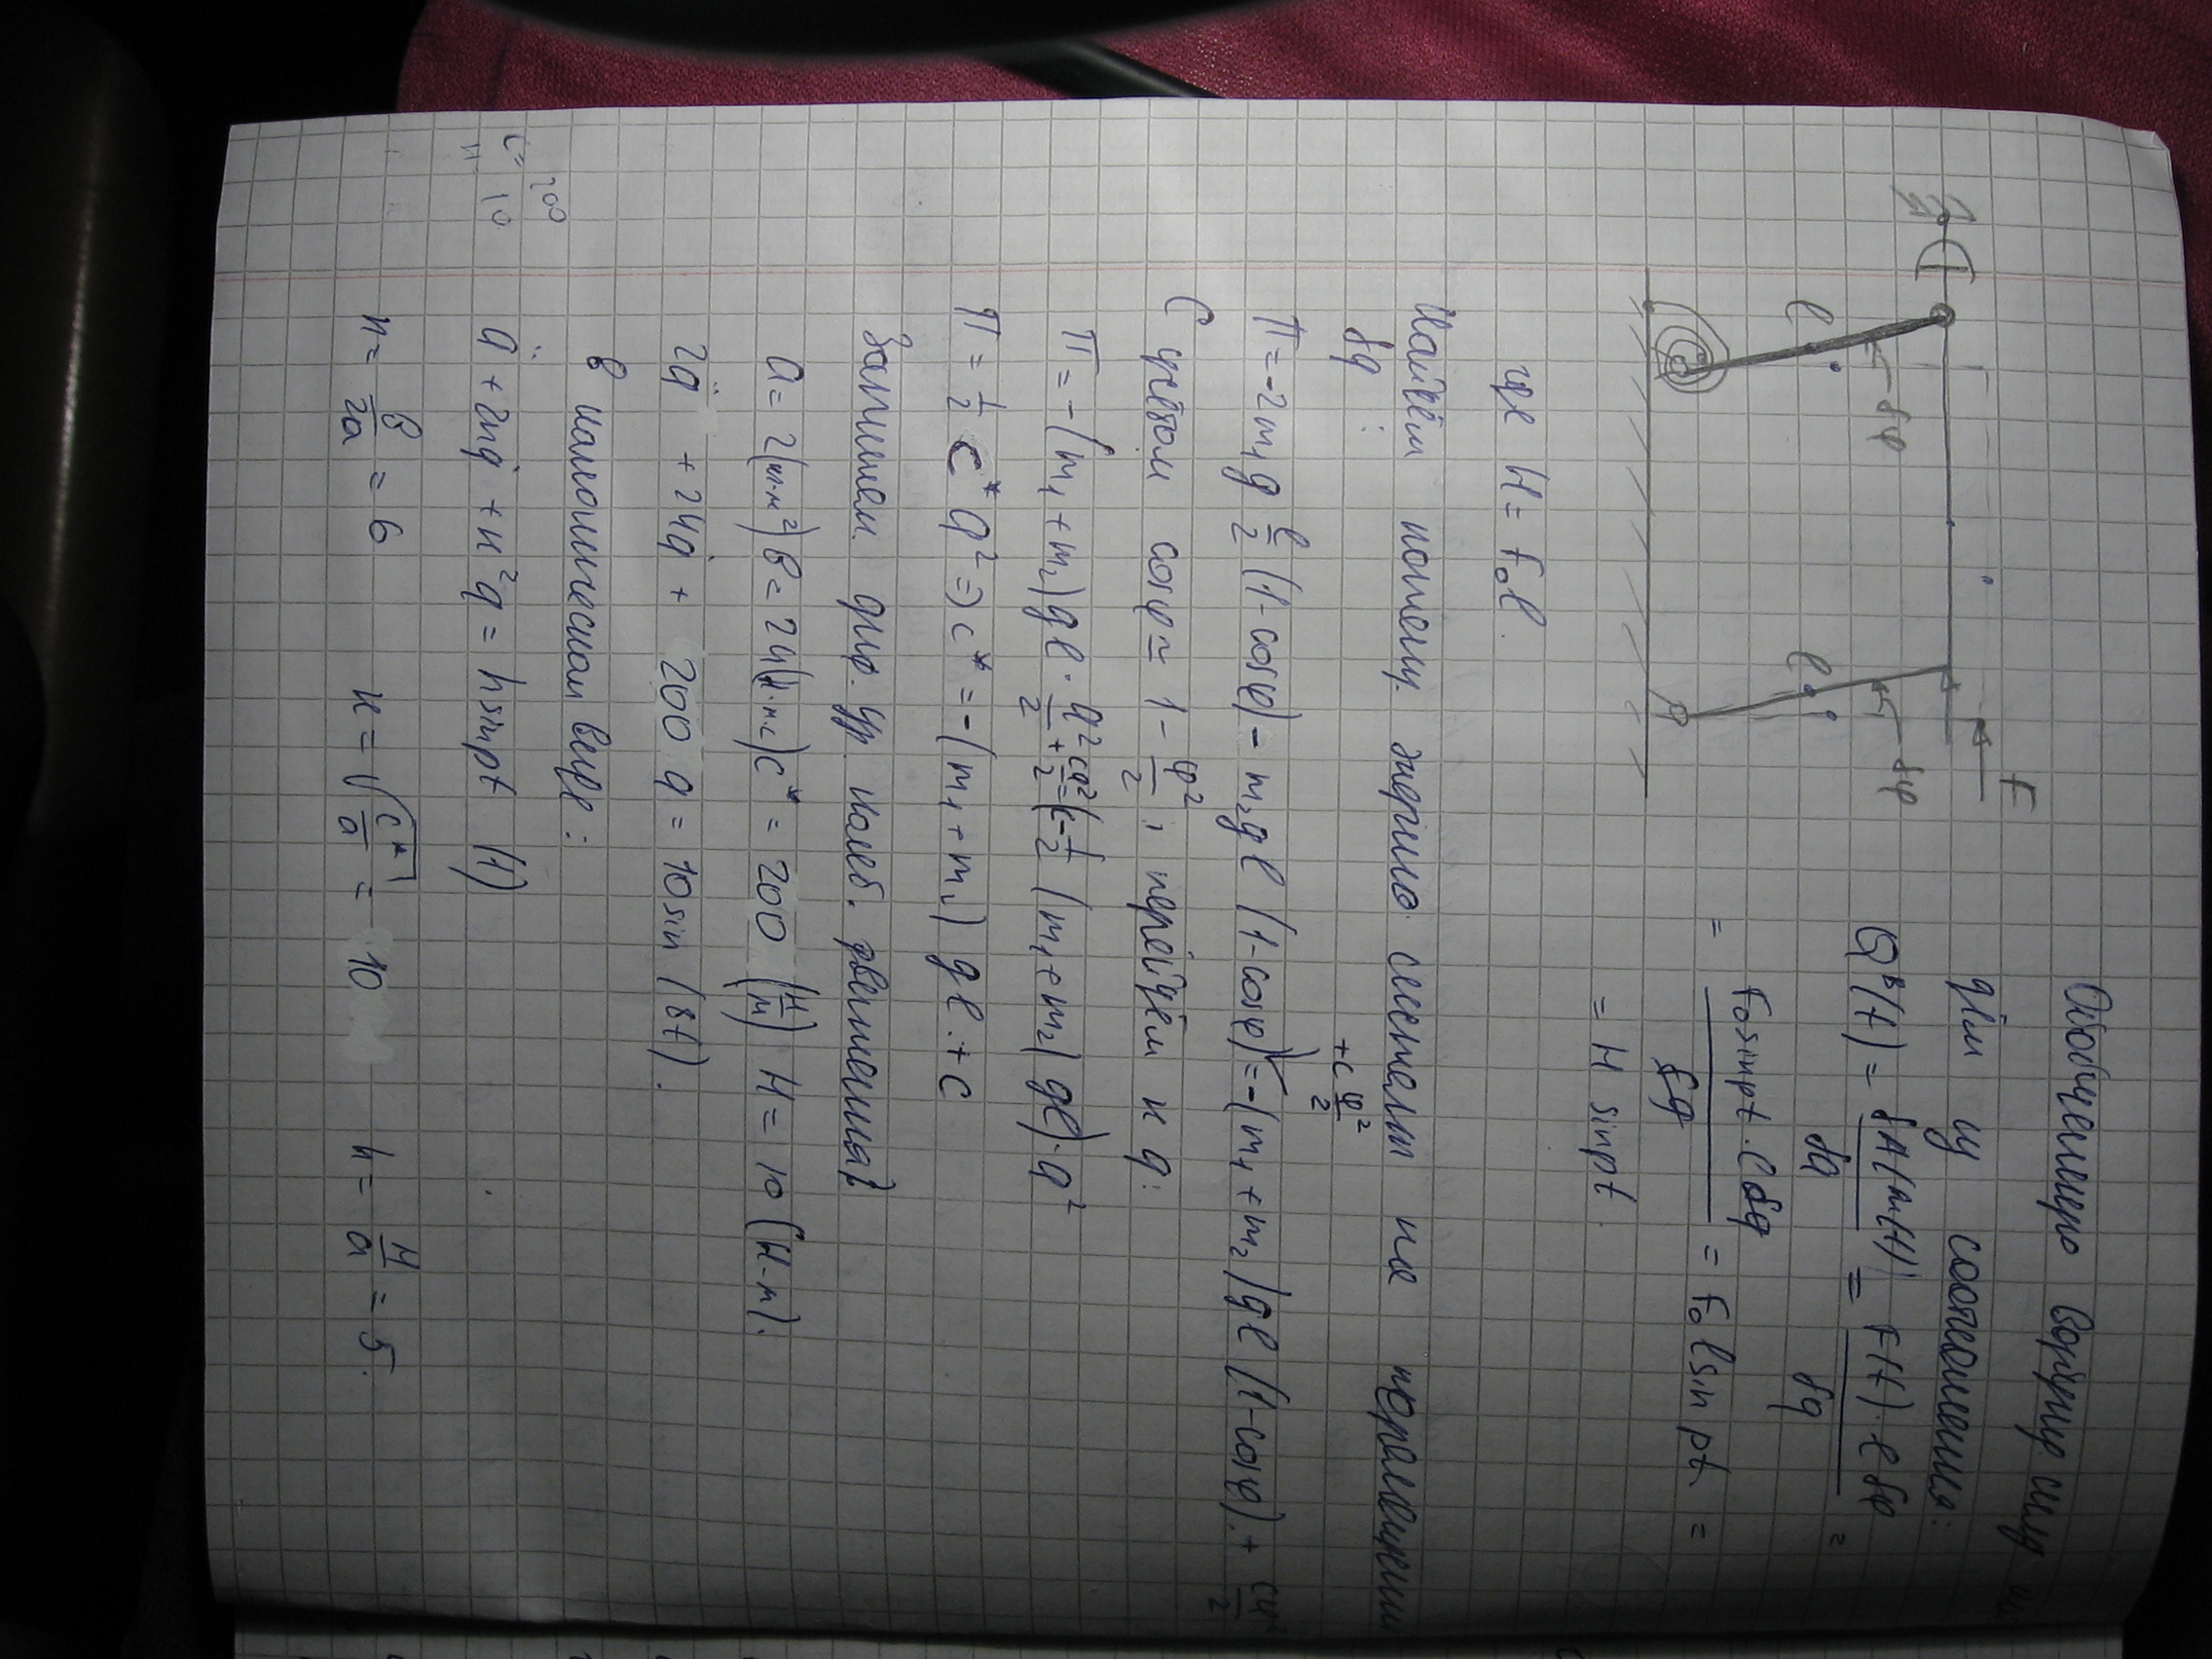 Обобщенную возмущ силу
дём из соотношения:
Q^B(t) = δA(F(t)) / δq = F(t)·l δφ / δq =
= F₀sinpt·l δq / δq = F₀lsin pt =
= H sinpt.
F
l
δφ
l
δφ
где H = F₀l.
Найдём потенц. энергию системы на перемещении
δq:
+c φ²/2
П = -2m₁g l/2 (1-cosφ) - m₂gl (1-cosφ) = -(m₁+m₂)gl (1-cosφ) + cφ²/2
С учётом cosφ ≃ 1 - φ²/2, перейдём к q:
П = -(m₁+m₂)gl · q²/2 + cq²/2 = (c - 1/2 (m₁+m₂)gl)·q²
П = 1/2 c* q² ⇒ c* = -(m₁+m₂)gl + c
Запишем диф. ур колеб. движения
a = 2 (кг·м²) b = 24 (Н·м·с) c* = 200 (Н/м) H = 10 (Н·м).
2q̈ + 24q̇ + 200q = 10sin(8t).
В каноническом виде:
q̈ + 2nq̇ + k²q = hsinpt (1)
n = b/2a = 6 k = √(c*/a) = 10 h = H/a = 5.
200
c=
10